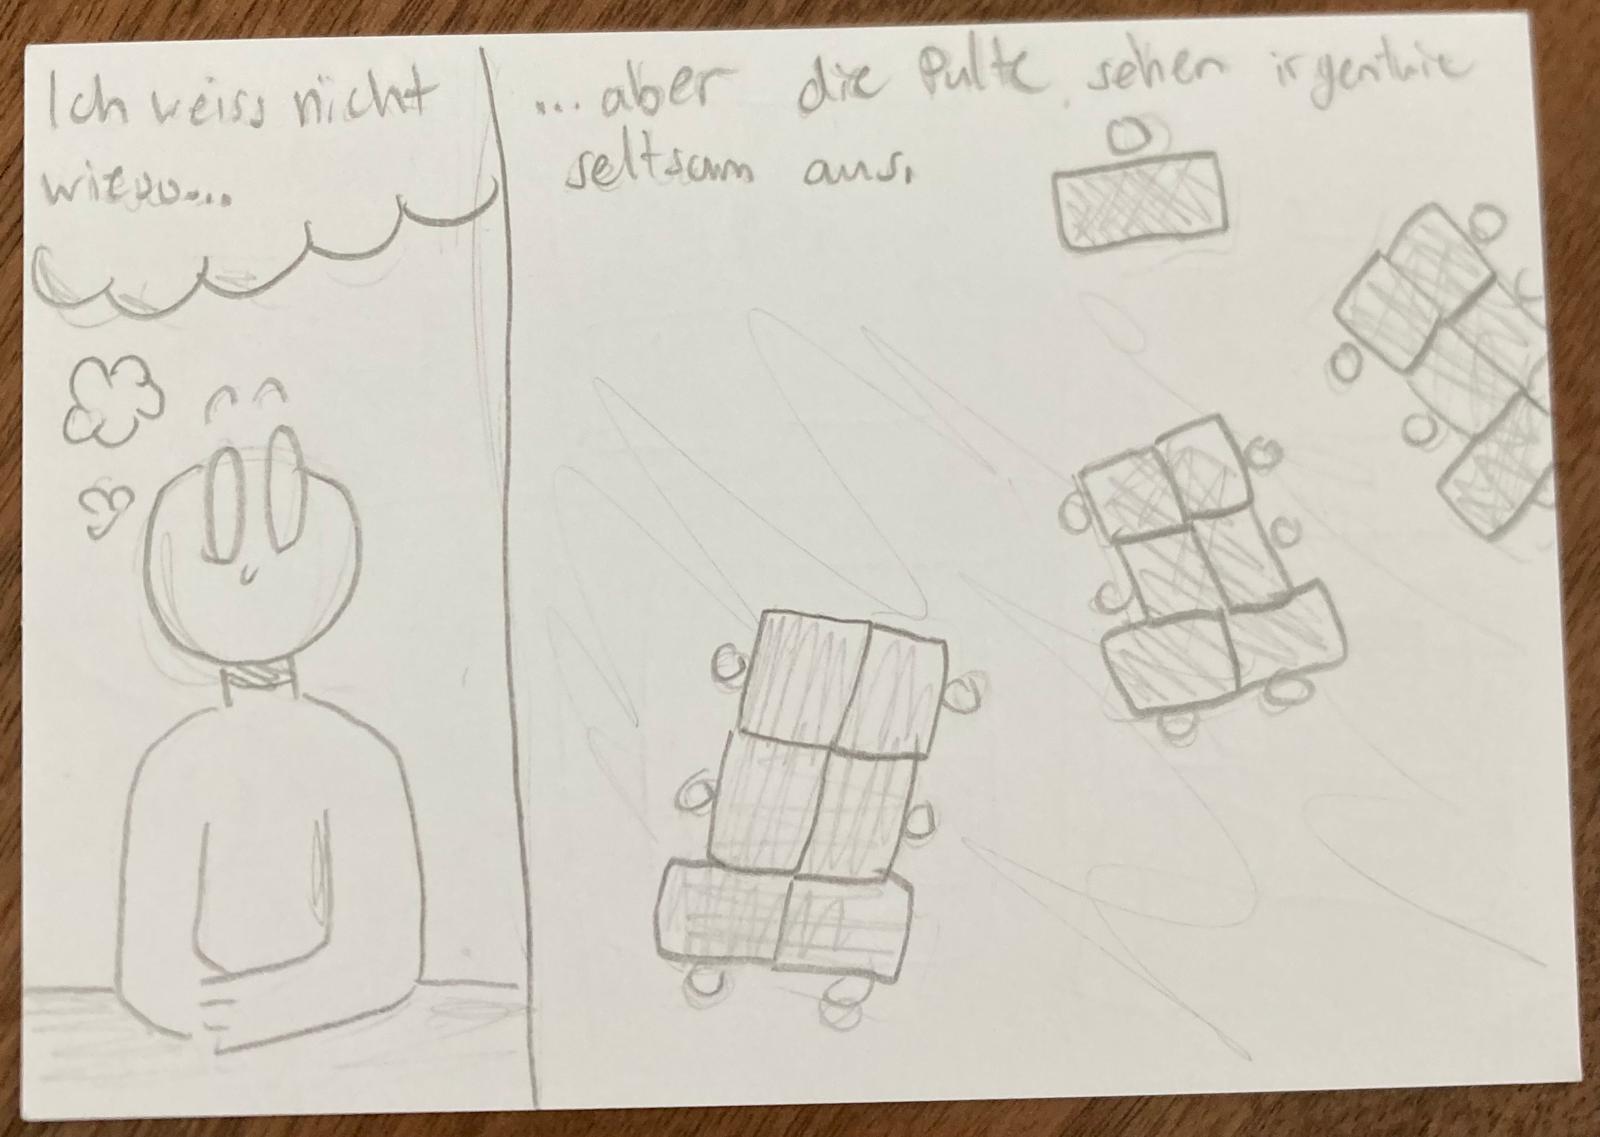 Ich weiss nicht
wieso...
...aber die Pulte sehen irgentwie
seltsam aus.